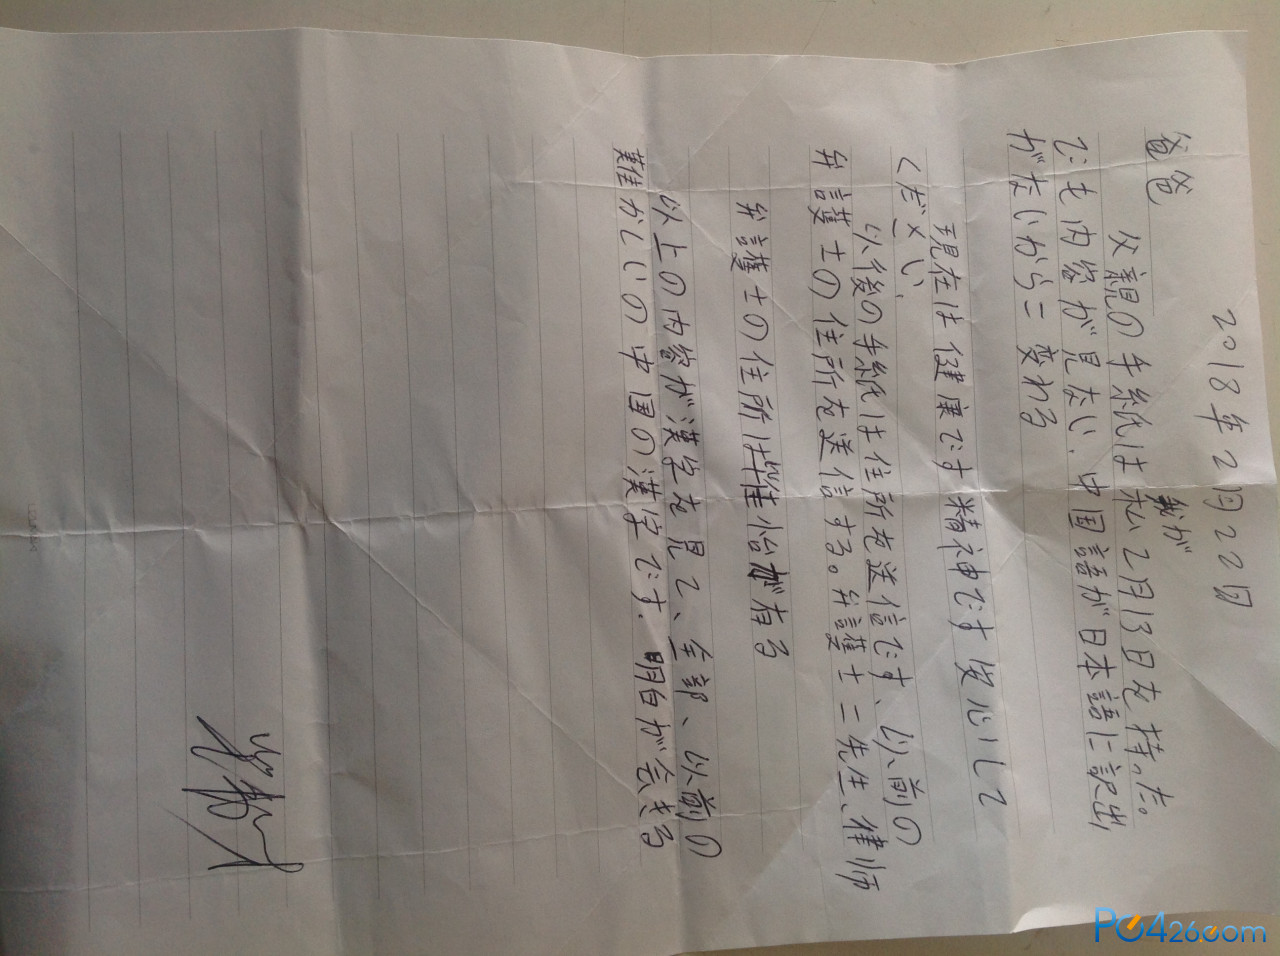 2018年2月22日
爸爸
父親の手紙は私が2月13日を持った。
でも内容が見ない、中国語が日本語に訳出
がないから二変わる
現在は健康です精神です安心して
ください、
以後の手紙は住所を送信です、以前の
弁護士の住所を送信する。弁護士二先生、律師
弁護士の住所は 有る
以上の内容が漢字を見て、全部、以前の
難かしいの中国の漢字です。明白が会きる
PC426.com